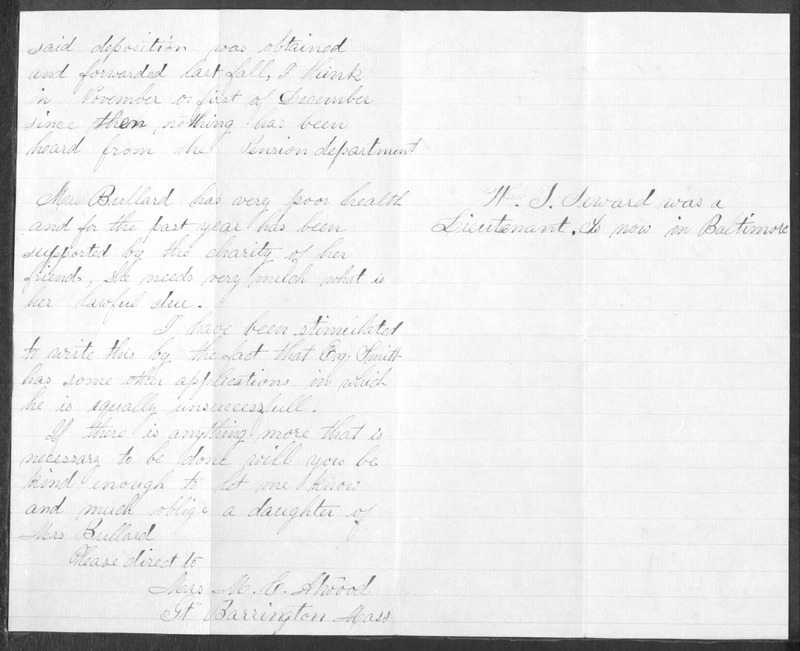 said deposition was obtained
and forwarded last fall, I think
in November or first of December
since then nothing has been
heard from the Pension department
Mrs Bullard has very poor health
and for the past year has been
supported by the charity of her
friends, she needs very much what is
her lawful due.
I have been stimulated
to write this by the fact that Esq. Smith
has some other applications in which
he is equally unsuccessfull.
If there is anything more that is
necessary to be done will you be
kind enough to let me know
and much oblige a daughter of
Mrs Bullard
Please direct to
Mrs M. C. Atwood
Gt Barrington Mass
W. J. Seward was a
Lieutenant. Is now in Baltimore